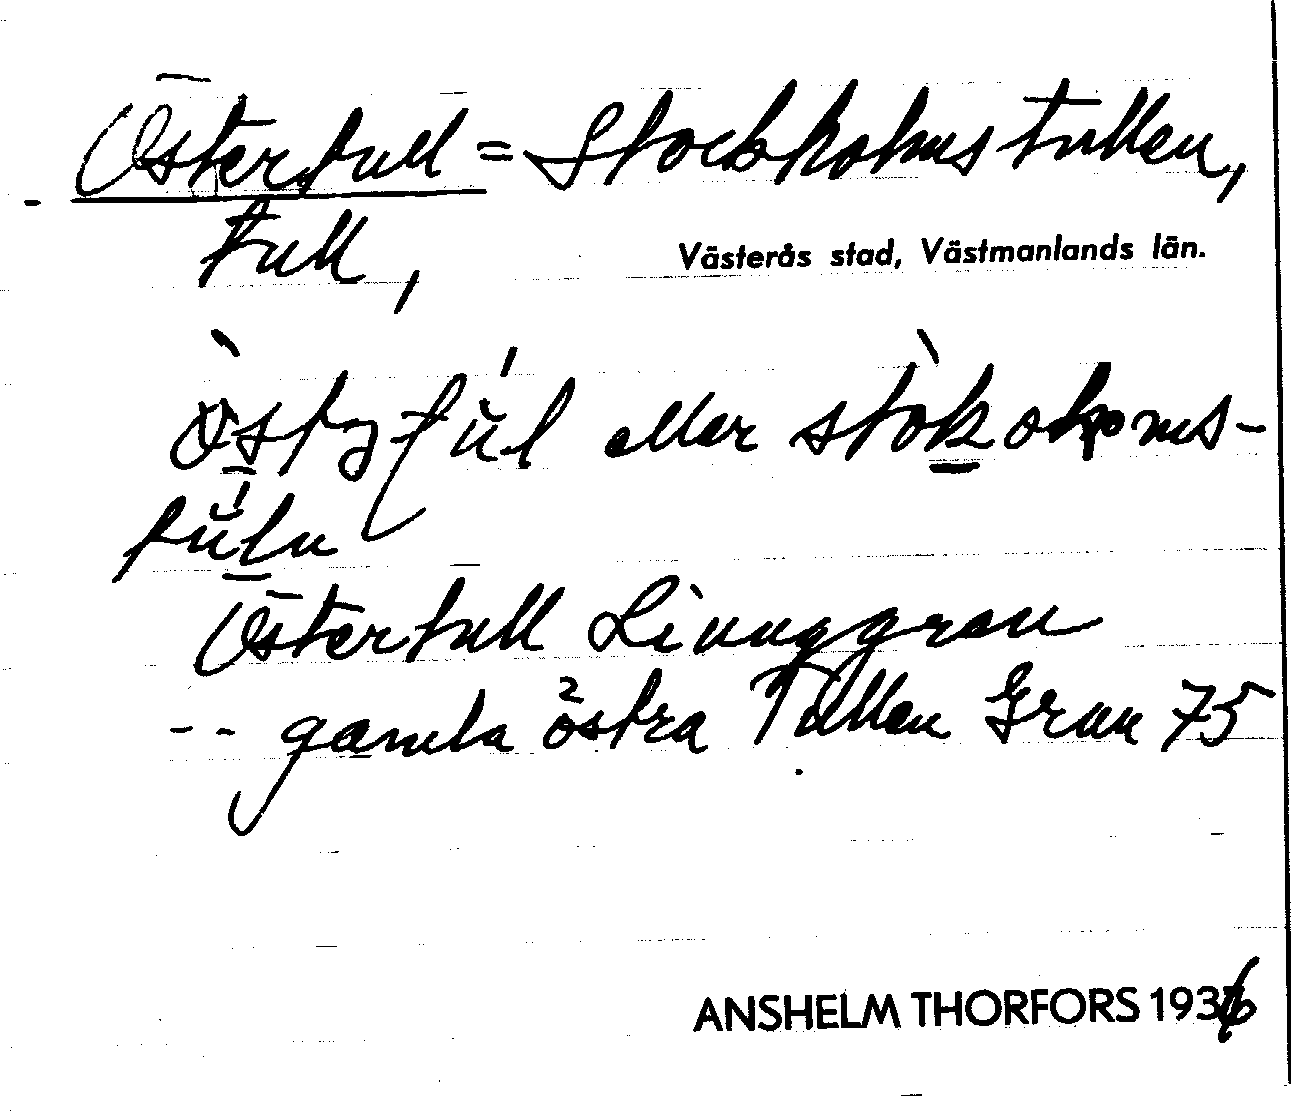 Östertull = Stockholmstullen,
tull,
Västerås stad, Västmanlands län.
eller
Östertull Linnggren
-- gamla östra Tullen Grau 75
ANSHELM THORFORS 1936